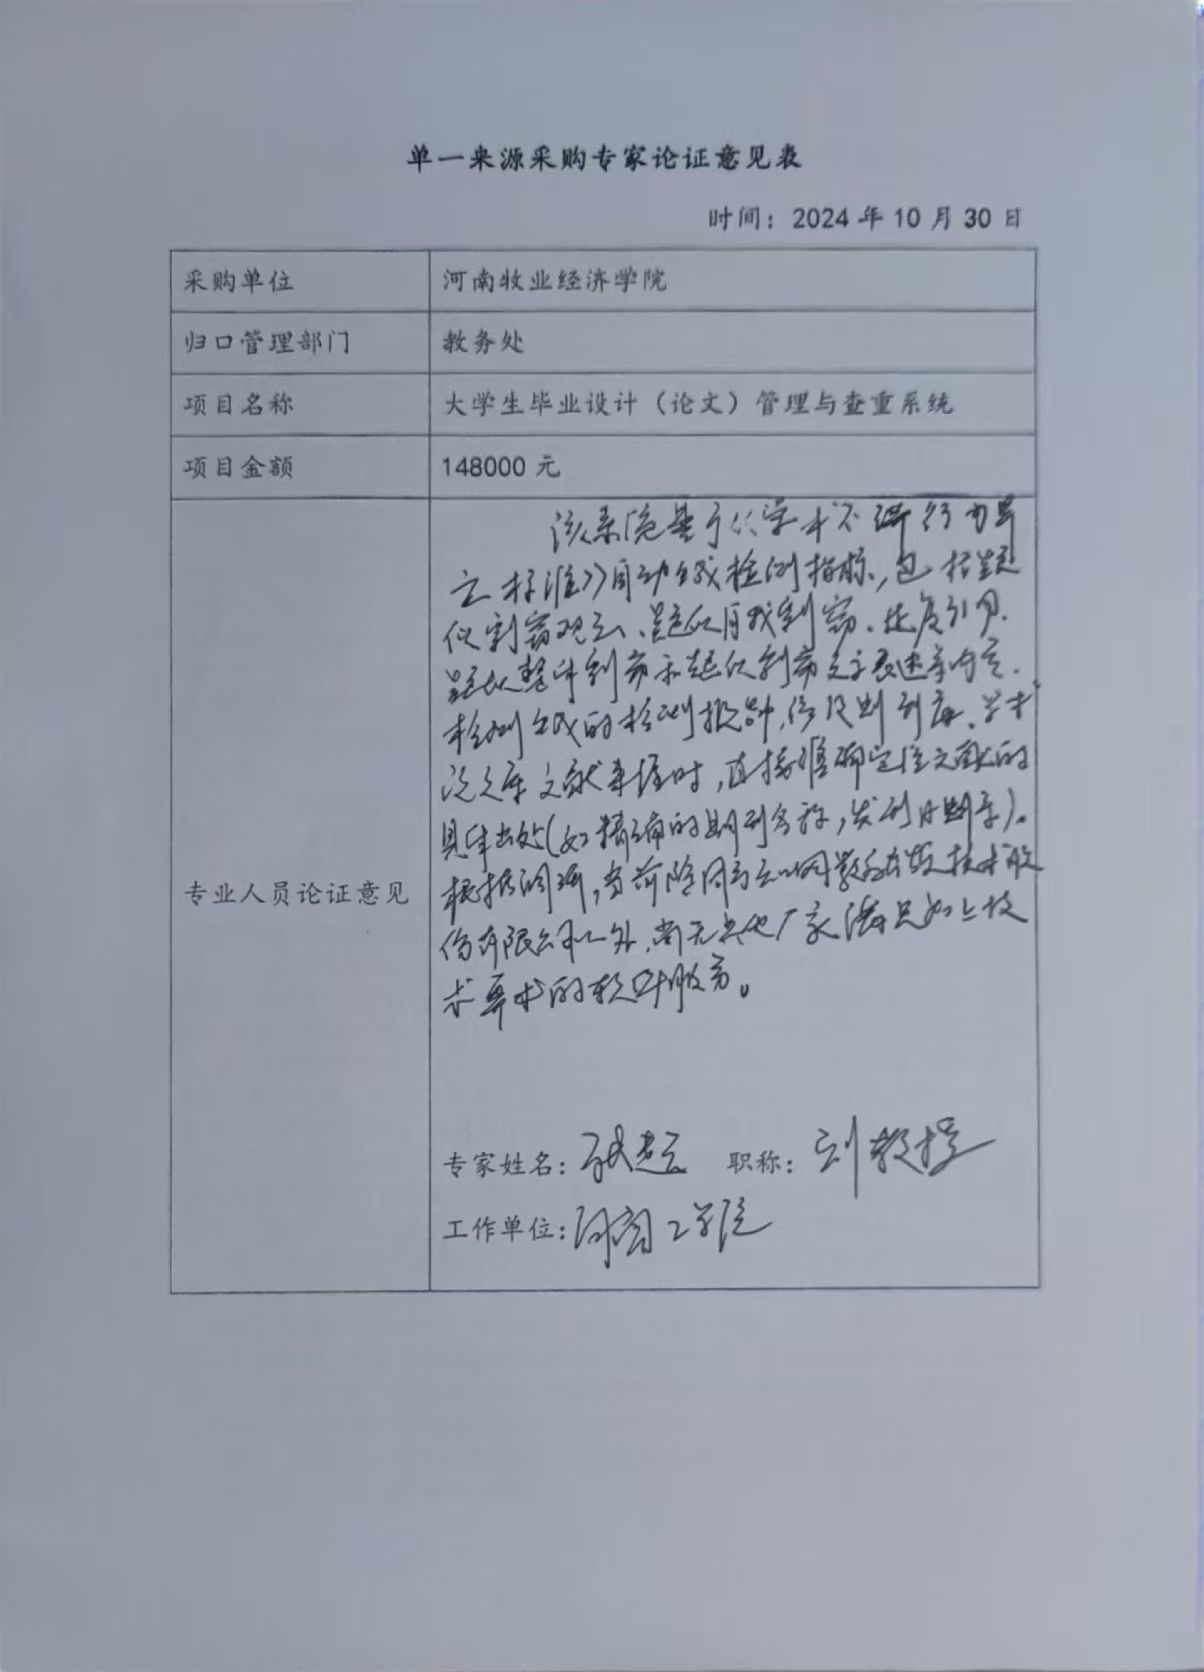 单一来源采购专家论证意见表
时间：2024 年 10 月 30 日
采购单位 河南牧业经济学院
归口管理部门 教务处
项目名称 大学生毕业设计（论文）管理与查重系统
项目金额 148000 元
专业人员论证意见
该系统基于《学术不端行为界
定标准》自动生成检测指标，包括疑
似剽窃观点、疑似自我剽窃、过度引用、
疑似整体剽窃和疑似剽窃文字表述等内容。
检测生成的检测报告，涉及期刊库、学术
论文库文献来源时，直接准确定位文献的
具体出处（如精确的期刊名称，发刊日期等）。
根据调研，当前除同方知网数字出版技术股
份有限公司外，尚无其他厂家满足如上技
术要求的软件服务。
专家姓名：张超 职称：副教授
工作单位：河南工学院